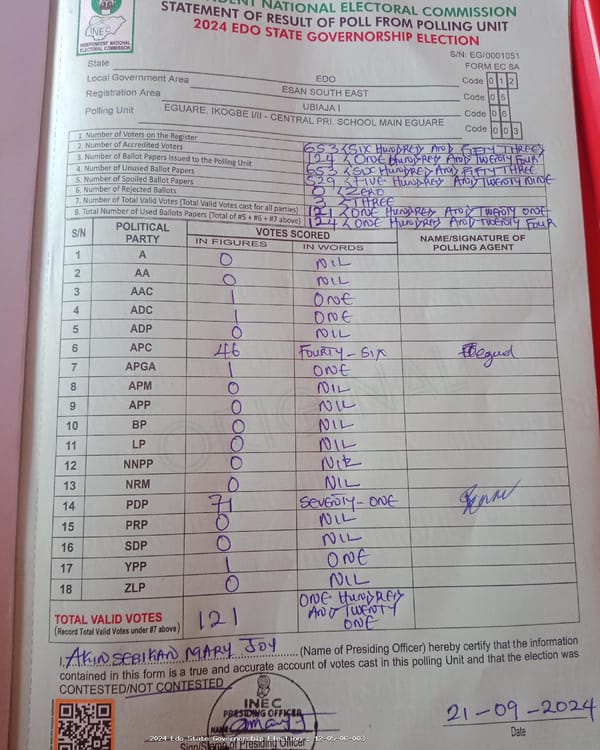 INDEPENDENT NATIONAL ELECTORAL COMMISSION
STATEMENT OF RESULT OF POLL FROM POLLING UNIT
2024 EDO STATE GOVERNORSHIP ELECTION
INEC
INDEPENDENT NATIONAL ELECTORAL COMMISSION
S/N: EG/0001051
FORM EC 8A
State EDO Code 0 1 2
Local Government Area ESAN SOUTH EAST Code 0 5
Registration Area UBIAJA I Code 0 6
Polling Unit EGUARE, IKOGBE I/II - CENTRAL PRI. SCHOOL MAIN EGUARE Code 0 0 3
1. Number of Voters on the Register 653 SIX HUNDRED AND FIFTY THREE
2. Number of Accredited Voters 124 ONE HUNDRED AND TWENTY FOUR
3. Number of Ballot Papers Issued to the Polling Unit 653 SIX HUNDRED AND FIFTY THREE
4. Number of Unused Ballot Papers 529 FIVE HUNDRED AND TWENTY NINE
5. Number of Spoiled Ballot Papers 0 ZERO
6. Number of Rejected Ballots 3 THREE
7. Number of Total Valid Votes (Total Valid Votes cast for all parties) 121 ONE HUNDRED AND TWENTY ONE
8. Total Number of Used Ballots Papers (Total of #5 + #6 + #7 above) 124 ONE HUNDRED AND TWENTY FOUR
S/N POLITICAL PARTY VOTES SCORED NAME/SIGNATURE OF POLLING AGENT
IN FIGURES IN WORDS
1 A 0 NIL
2 AA 0 NIL
3 AAC 1 ONE
4 ADC 1 ONE
5 ADP 0 NIL
6 APC 46 FOURTY-SIX
7 APGA 1 ONE
8 APM 0 NIL
9 APP 0 NIL
10 BP 0 NIL
11 LP 0 NIL
12 NNPP 0 NIL
13 NRM 0 NIL
14 PDP 71 SEVENTY-ONE
15 PRP 0 NIL
16 SDP 0 NIL
17 YPP 1 ONE
18 ZLP 0 NIL
TOTAL VALID VOTES 121 ONE HUNDRED AND TWENTY ONE
(Record Total Valid Votes under #7 above)
ORIGINAL
I, AKINSEBIKAN MARY JOY (Name of Presiding Officer) hereby certify that the information
contained in this form is a true and accurate account of votes cast in this polling Unit and that the election was
CONTESTED/NOT CONTESTED
INEC
PRESIDING OFFICER
NAME
21-09-2024
Date
2024 Edo State Governorship Election - 12-05-06-003
Sign/Stamp of Presiding Officer